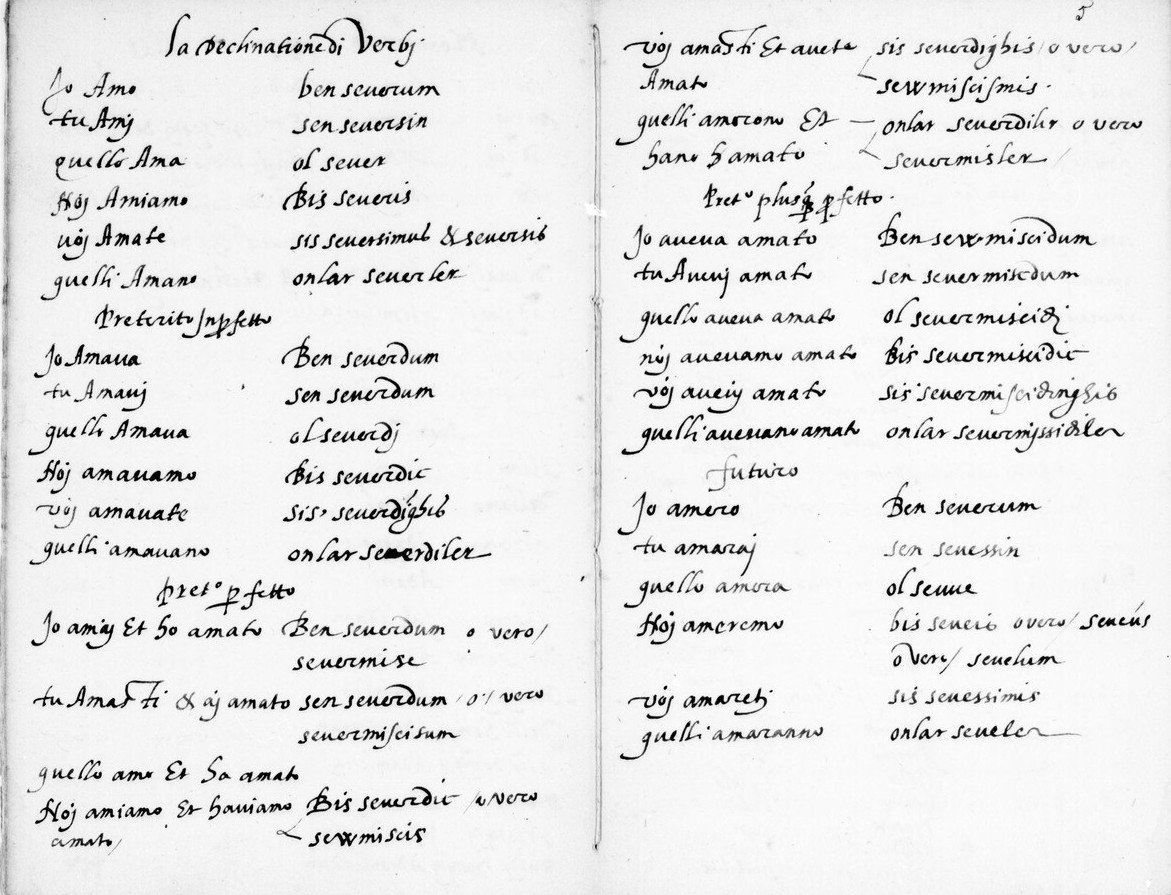 La Declinatione di Verbj
Jo Amo ben seuerum
tu Amj sen seuersin
quello Ama ol seuer
Noj Amiamo Bis seueris
voj Amate sis seuersimus & seuersis
quelli Amano onlar seuerler
Preterito Inperfetto
Jo Amaua Ben seuerdum
tu Amauj sen seuerdum
quello Amaua ol seuerdj
Noj amauamo Bis seuerdic
voj amauate sis seuerdighis
quelli amauano onlar seuerdiler
pret.o perfetto
Jo amaj Et ho amato Ben seuerdum o vero/
seuermise
tu Amasti & aj amato sen seuerdum / o / vero
seuermiscisum
quello amo Et ha amato
Noj amiamo Et hauiamo Bis seuerdic / o vero
amato/ sewmiscis
5
voj amasti Et auete sis seuerdighis / o vero /
Amato sewmiscismis.
quelli amorono Et onlar seuerdiler o vero
hano hamato seuermisler /
Pret.o plusq perfetto.
Jo aueua amato Ben sewmiscidum
tu Aueuj amato sen seuermiscdum
quello aueua amato ol seuermiscidj
noj aueuamo amato Bis seuermiscidic
voj aueuj amato sis seuermiscidinghis
quelli aueuano amato onlar seuermissidiler
futuro
Jo amero Ben seuerum
tu amaraj sen seuessin
quello amera ol seuue
Noj ameremo bis seueis overo / seueus
overo / seuelum
voj amaretj sis seuessimis
quelli amaranno onlar seueler